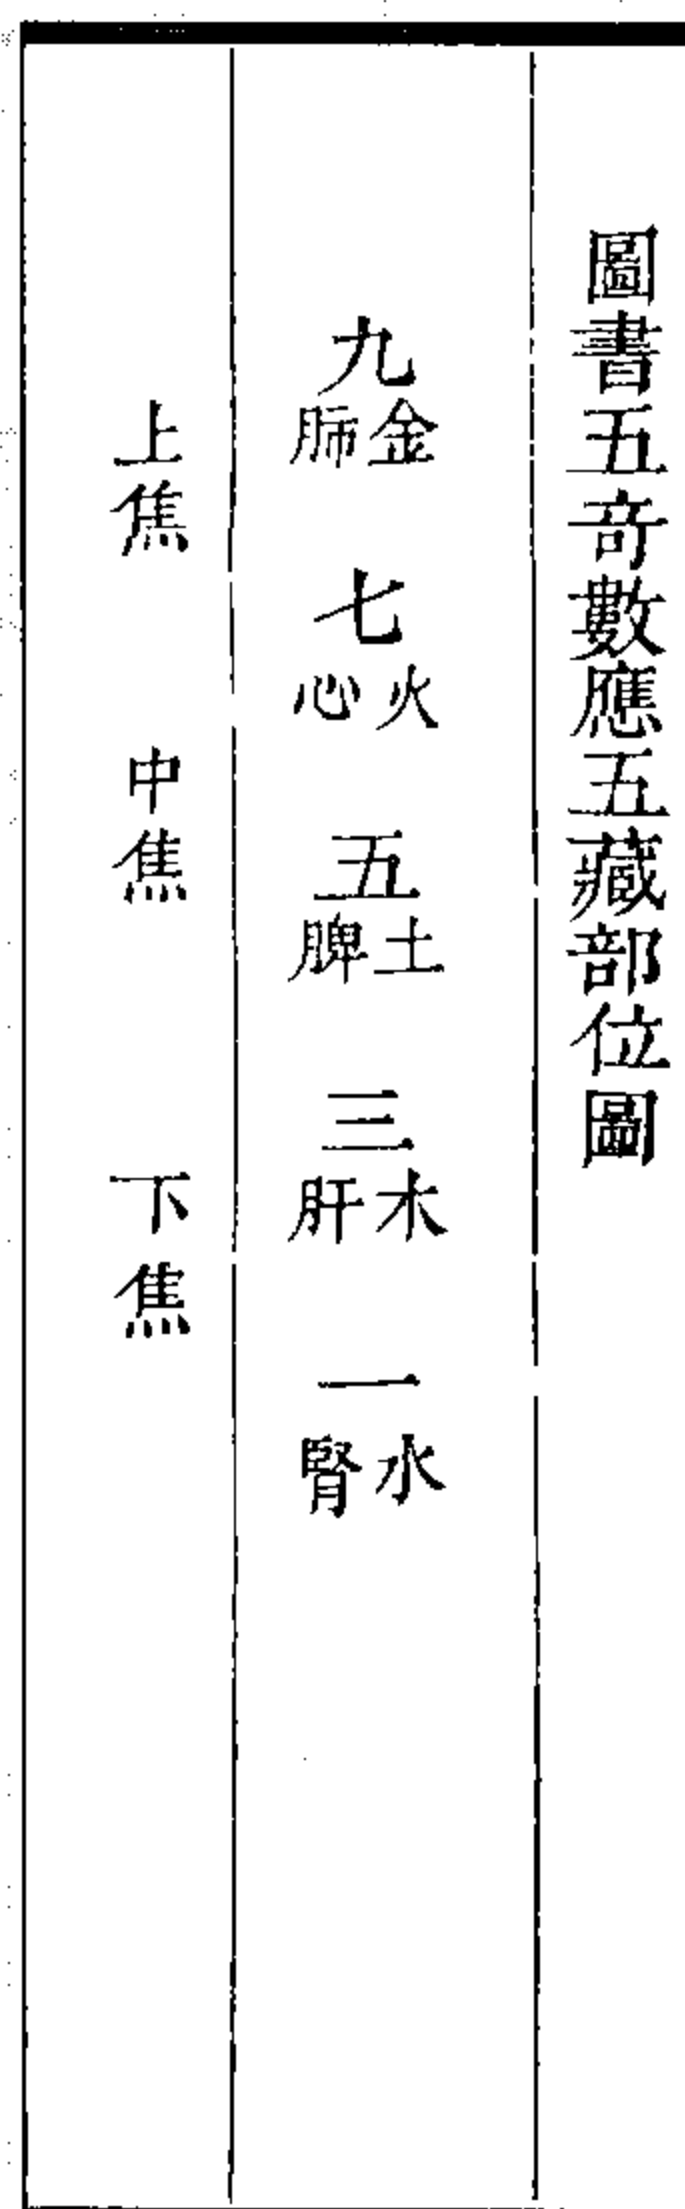 圖書五奇數應五藏部位圖
九金肺 七火心 五土脾 三木肝 一水腎
上焦 中焦 下焦